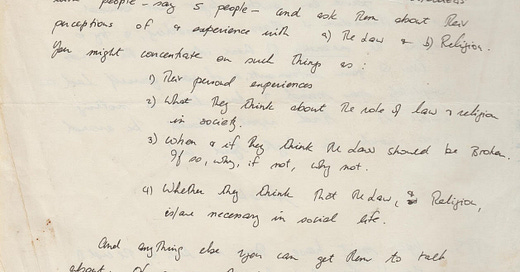 some people – say 5 people – and ask them about their
perceptions of & experience with a) The Law & b) Religion.
You might concentrate on such things as:
1) Their personal experiences
2) What they think about the role of law & religion
in society.
3) When & if they think the Law should be Broken.
If so, why, if not, why not.
4) Whether they think that the Law, & Religion,
is/are necessary in social life.
And anything else you can get them to talk
about.